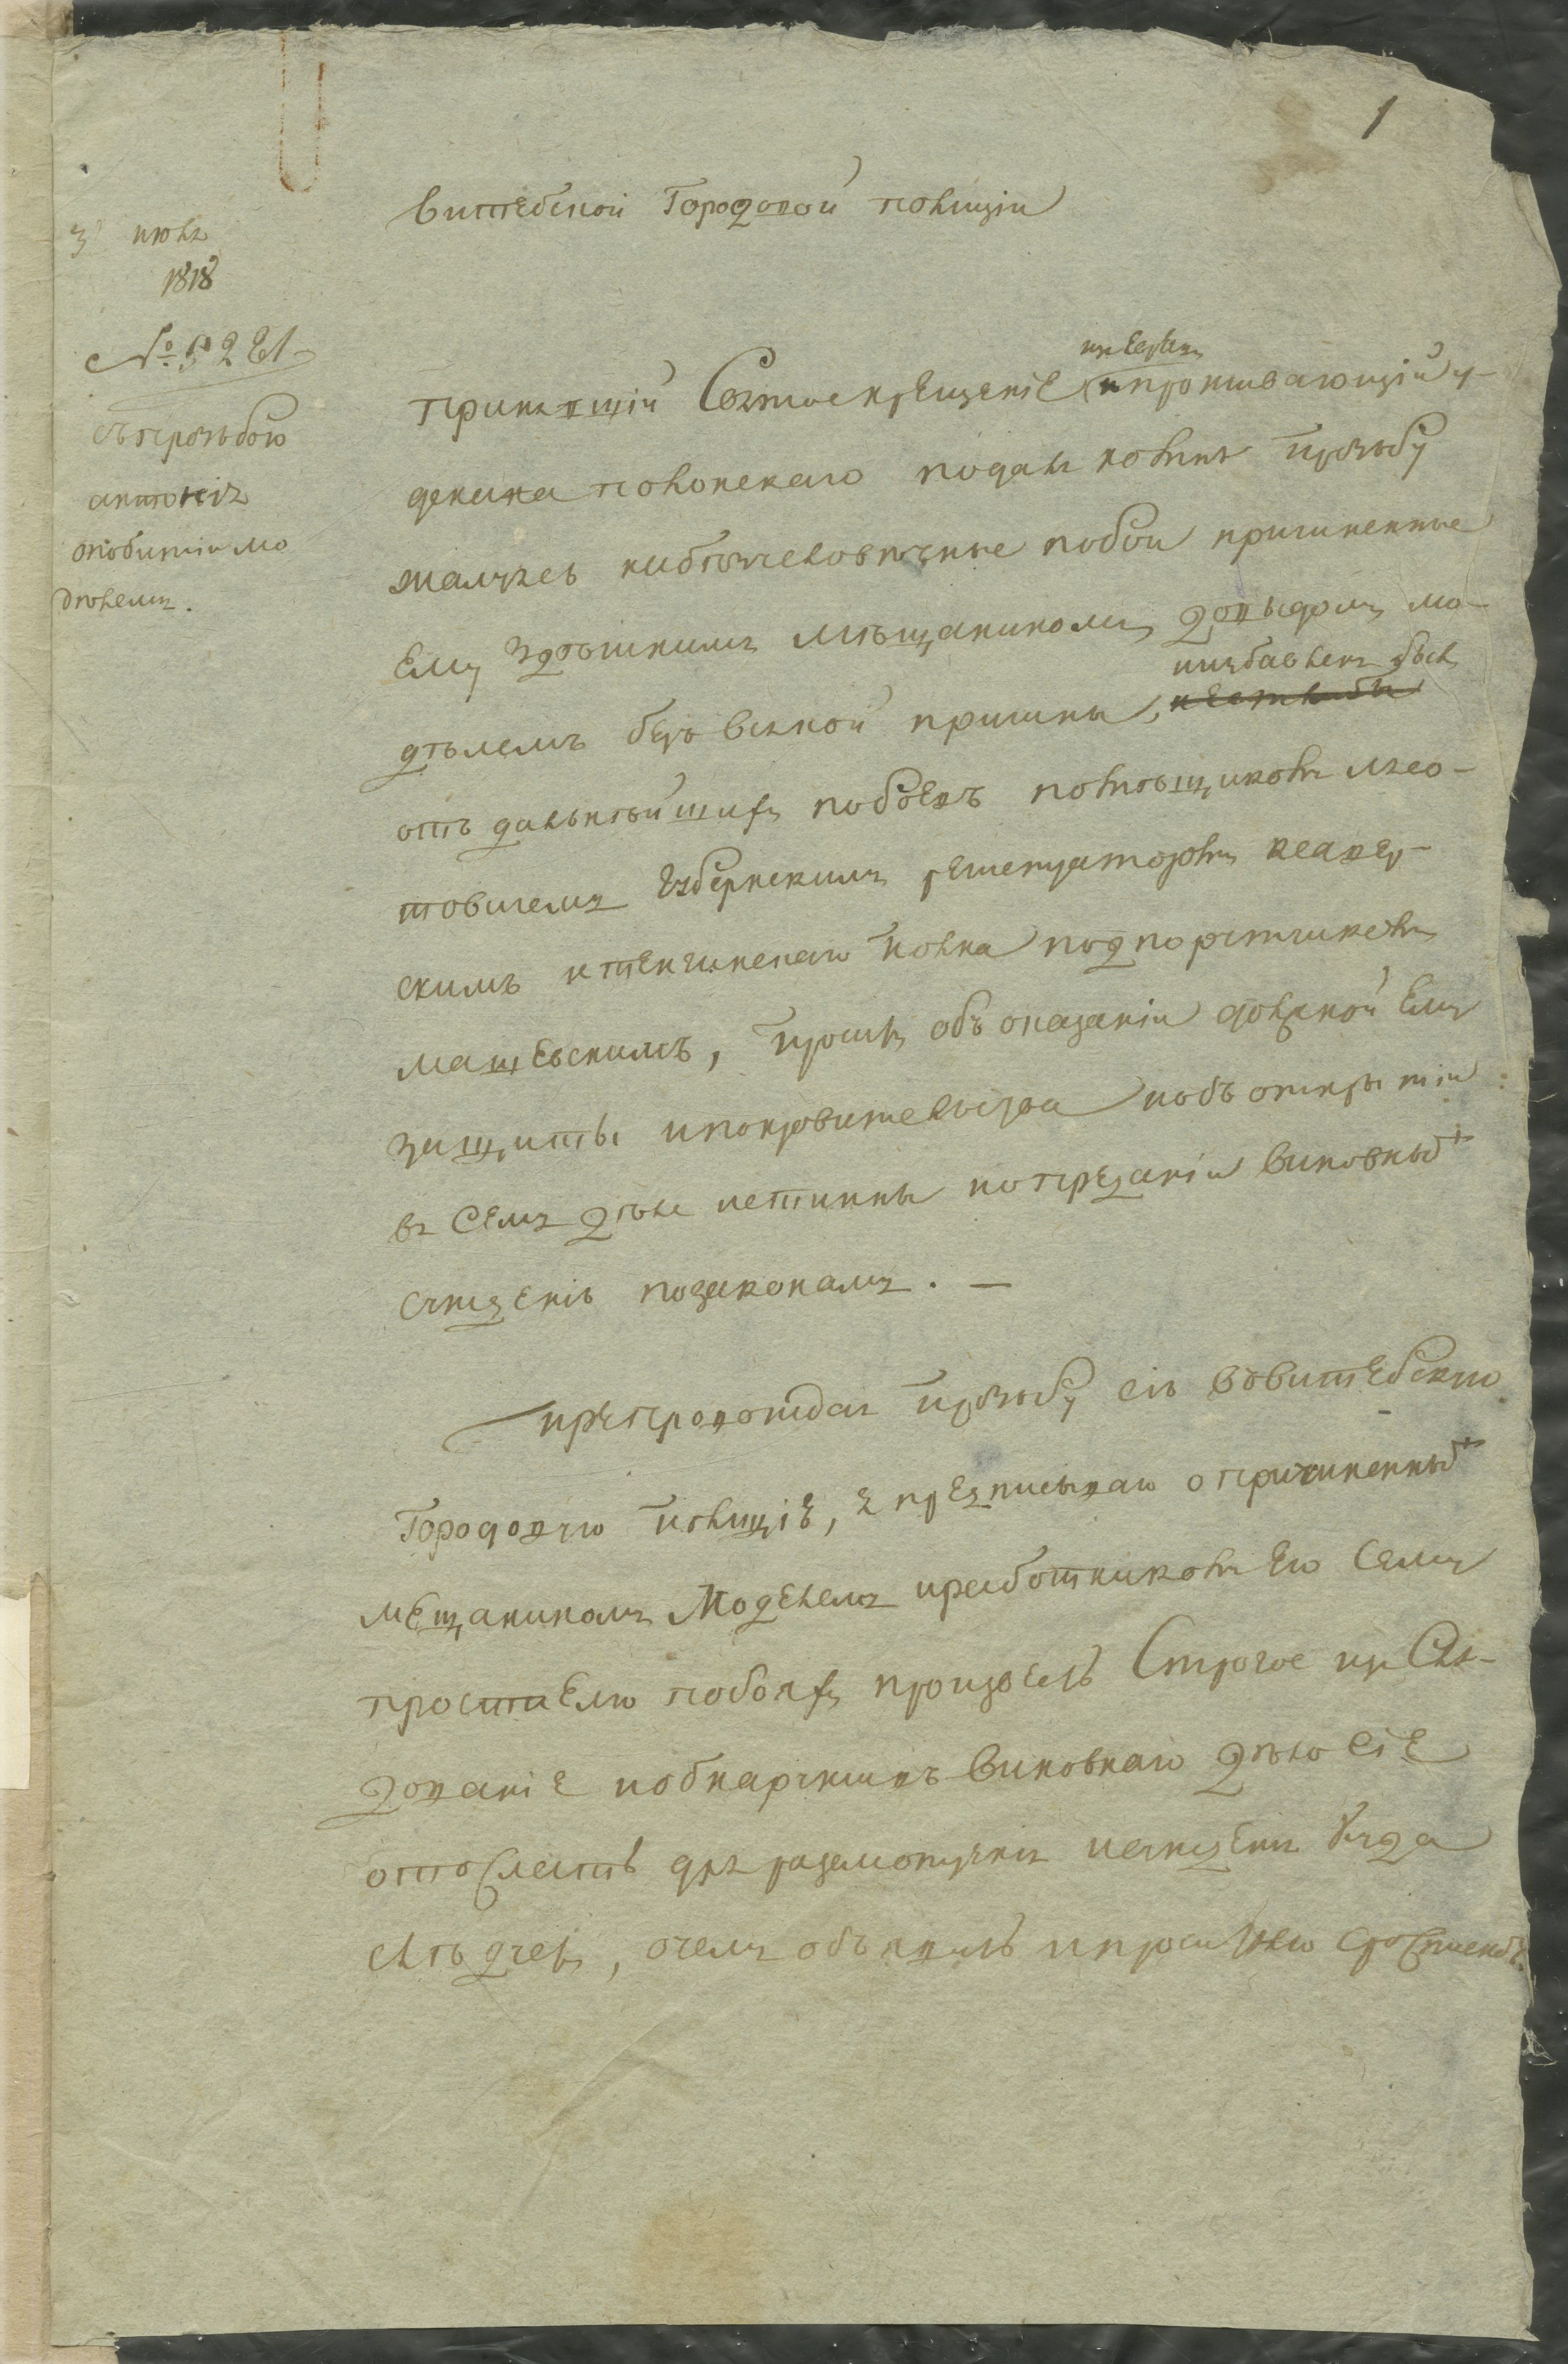 1
Витебской Городовой полиции
3 июня
1818
№ 5281
съ прозьбою
антонія
о побитіи мо
дѣлемъ.
Принявшій Святое крещеніе изъ Евреевъ и проживающій у
декина полонскаго подалъ ко мнѣ прозьбу
жалуясь на безчеловѣчные побои причиненные
Ему здѣшнимъ мѣщаниномъ Довыдомъ мо-
дѣлемъ безъ всякой причины, и избавленъ былъ
отъ дальнѣйшихъ побоевъ помѣщикомъ
Губернскимъ регистраторомъ
скимъ и пехотнаго полка подпорутчикомъ
мацѣевскимъ, проситъ объ оказаніи должной Ему
защиты и покровительства и объ открытіи
въ Семъ дѣле истинны и о преданіи виновныхъ
сужденію по законамъ. —
препровождая прозьбу сію въ витебскую
Городовую полицію, я предписываю о причиненныхъ
мещаниномъ Моделемъ и работникомъ Его Сему
просителю побояхъ произвесть Строгое изслѣ-
дованіе и обнаруживъ виновнаго дѣло сіе
отослать для разсмотрѣнія и сужденія куда
слѣдуетъ, о чемъ объявить и просителю